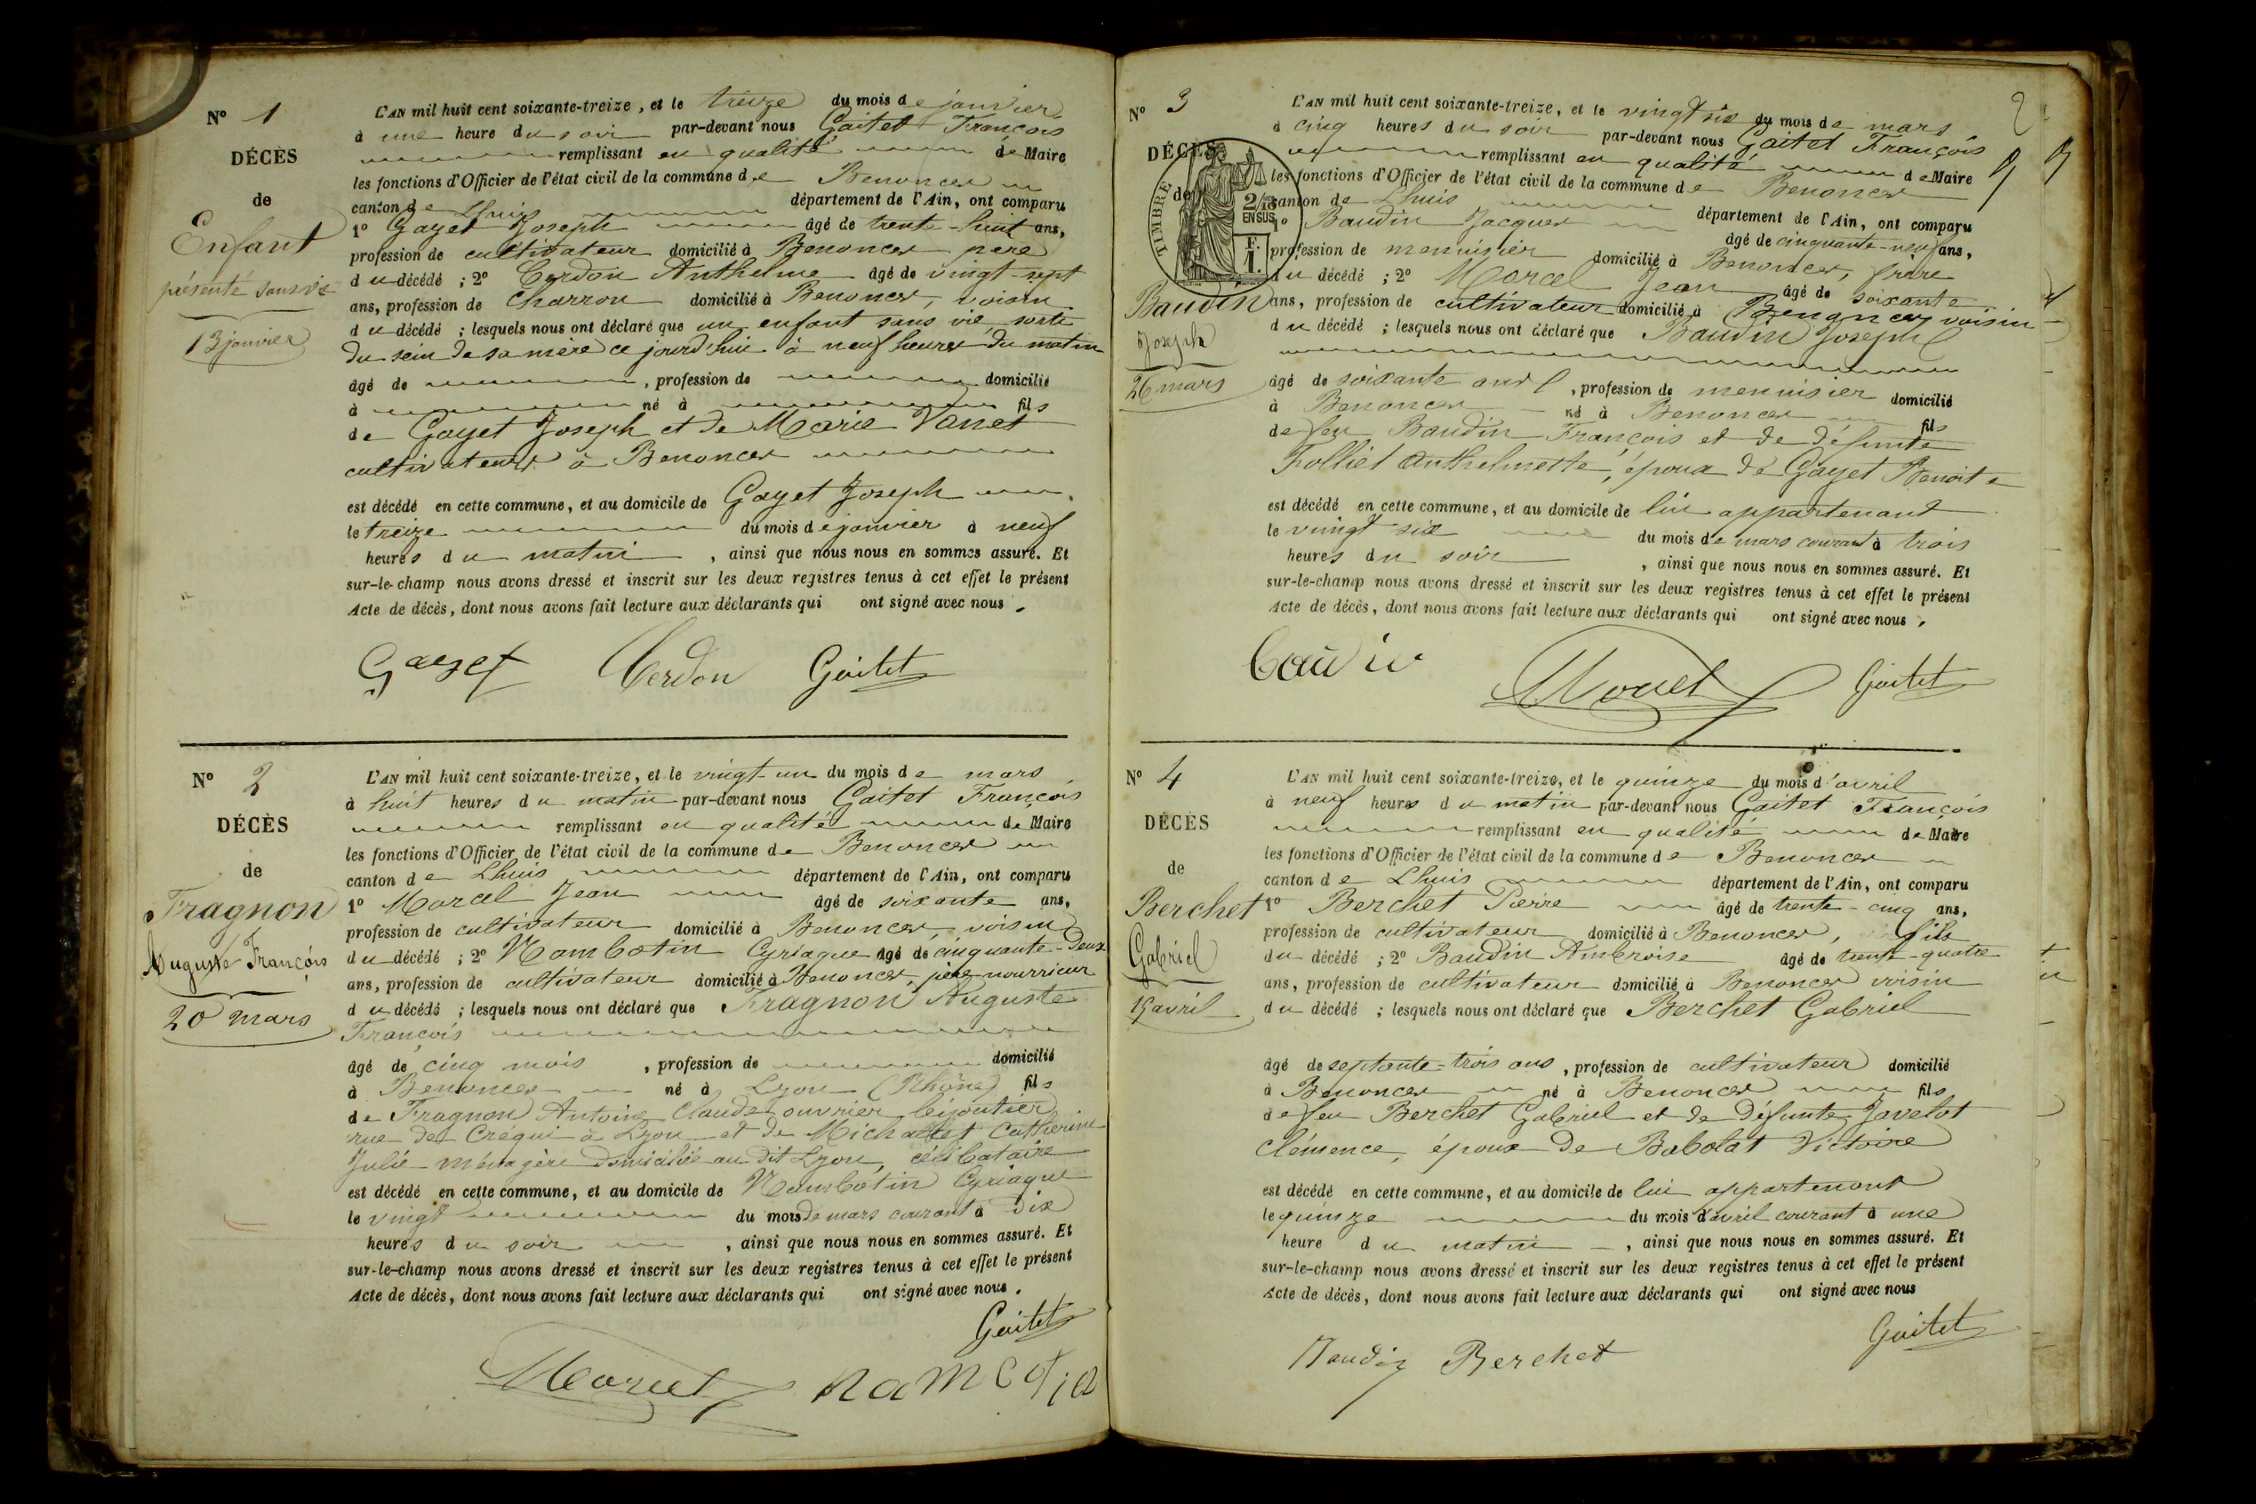 N° 1
DÉCÈS
de
Enfant
présenté sans vie
13 janvier
L'AN mil huit cent soixante-treize, et le treize du mois de janvier
à une heure du soir par-devant nous Gaitet François
remplissant en qualité de Maire
les fonctions d'Officier de l'état civil de la commune de Benonces
canton de Lhuis département de l'Ain, ont comparu
1° Gayet Joseph âgé de trente-huit ans,
profession de cultivateur domicilié à Benonces père
du décédé ; 2° Cerdon Anthelme âgé de vingt-sept
ans, profession de charron domicilié à Benonces, voisin
du décédé ; lesquels nous ont déclaré que un enfant sans vie, sorti
du sein de sa mère ce jourd'hui à neuf heures du matin
âgé de , profession de domicilié
à né à fils
de Gayet Joseph et de Marie Vanet
cultivateurs à Benonces
est décédé en cette commune, et au domicile de Gayet Joseph
le treize du mois de janvier à neuf
heures du matin , ainsi que nous nous en sommes assuré. Et
sur-le-champ nous avons dressé et inscrit sur les deux registres tenus à cet effet le présent
Acte de décès, dont nous avons fait lecture aux déclarants qui ont signé avec nous.
Gayet Cerdon Gaitet
N° 2
DÉCÈS
de
Fragnon
Auguste François
20 mars
L'AN mil huit cent soixante-treize, et le vingt-un du mois de mars
à huit heures du matin par-devant nous Gaitet François
remplissant en qualité de Maire
les fonctions d'Officier de l'état civil de la commune de Benonces
canton de Lhuis département de l'Ain, ont comparu
1° Marcel Jean âgé de soixante ans,
profession de cultivateur domicilié à Benonces, voisin
du décédé ; 2° Nambotin Cyriaque âgé de cinquante-deux
ans, profession de cultivateur domicilié à Benonces, père nourricier
du décédé ; lesquels nous ont déclaré que Fragnon Auguste
François
âgé de cinq mois , profession de domicilié
à Benonces né à Lyon (Rhône) fils
de Fragnon Antoine Claude, ouvrier bijoutier
rue de Créqui à Lyon et de Michallet Catherine
Julie ménagère domiciliée au dit Lyon, célibataire
est décédé en cette commune, et au domicile de Nambotin Cyriaque
le vingt du mois de mars courant à dix
heures du soir , ainsi que nous nous en sommes assuré. Et
sur-le-champ nous avons dressé et inscrit sur les deux registres tenus à cet effet le présent
Acte de décès, dont nous avons fait lecture aux déclarants qui ont signé avec nous.
Gaitet
Marcel
N° 3
2
DÉCÈS
de
TIMBRE
2/10
EN SUS
Baudin
Joseph
26 mars
L'AN mil huit cent soixante-treize, et le vingt six du mois de mars
à cinq heures du soir par-devant nous Gaitet François
remplissant en qualité de Maire
les fonctions d'Officier de l'état civil de la commune de Benonces
canton de Lhuis département de l'Ain, ont comparu
1° Baudin Jacques âgé de cinquante-neuf ans,
profession de menuisier domicilié à Benonces, frère
du décédé ; 2° Marcel Jean âgé de soixante
ans, profession de cultivateur domicilié à Benonces voisin
du décédé ; lesquels nous ont déclaré que Baudin Joseph
âgé de soixante ans , profession de menuisier domicilié
à Benonces né à Benonces fils
de feu Baudin François et de défunte
Folliet Anthelmette, époux de Gayet Benoite
est décédé en cette commune, et au domicile de lui appartenant
le vingt six du mois de mars courant à trois
heures du soir , ainsi que nous nous en sommes assuré. Et
sur-le-champ nous avons dressé et inscrit sur les deux registres tenus à cet effet le présent
Acte de décès, dont nous avons fait lecture aux déclarants qui ont signé avec nous.
Baudin Marcel Gaitet
N° 4
DÉCÈS
de
Berchet
Gabriel
15 avril
L'AN mil huit cent soixante-treize, et le quinze du mois d'avril
à neuf heures du matin par-devant nous Gaitet François
remplissant en qualité de Maire
les fonctions d'Officier de l'état civil de la commune de Benonces
canton de Lhuis département de l'Ain, ont comparu
1° Berchet Pierre âgé de trente-cinq ans,
profession de cultivateur domicilié à Benonces, fils
du décédé ; 2° Baudin Ambroise âgé de trente-quatre
ans, profession de cultivateur domicilié à Benonces voisin
du décédé ; lesquels nous ont déclaré que Berchet Gabriel
âgé de septante-trois ans, profession de cultivateur domicilié
à Benonces né à Benonces fils
de feu Berchet Gabriel et de défunte Javelot
Clémence, époux de Babolat Victoire
est décédé en cette commune, et au domicile de lui appartenant
le quinze du mois d'avril courant à une
heure du matin , ainsi que nous nous en sommes assuré. Et
sur-le-champ nous avons dressé et inscrit sur les deux registres tenus à cet effet le présent
Acte de décès, dont nous avons fait lecture aux déclarants qui ont signé avec nous
Gaitet
Baudin Berchet